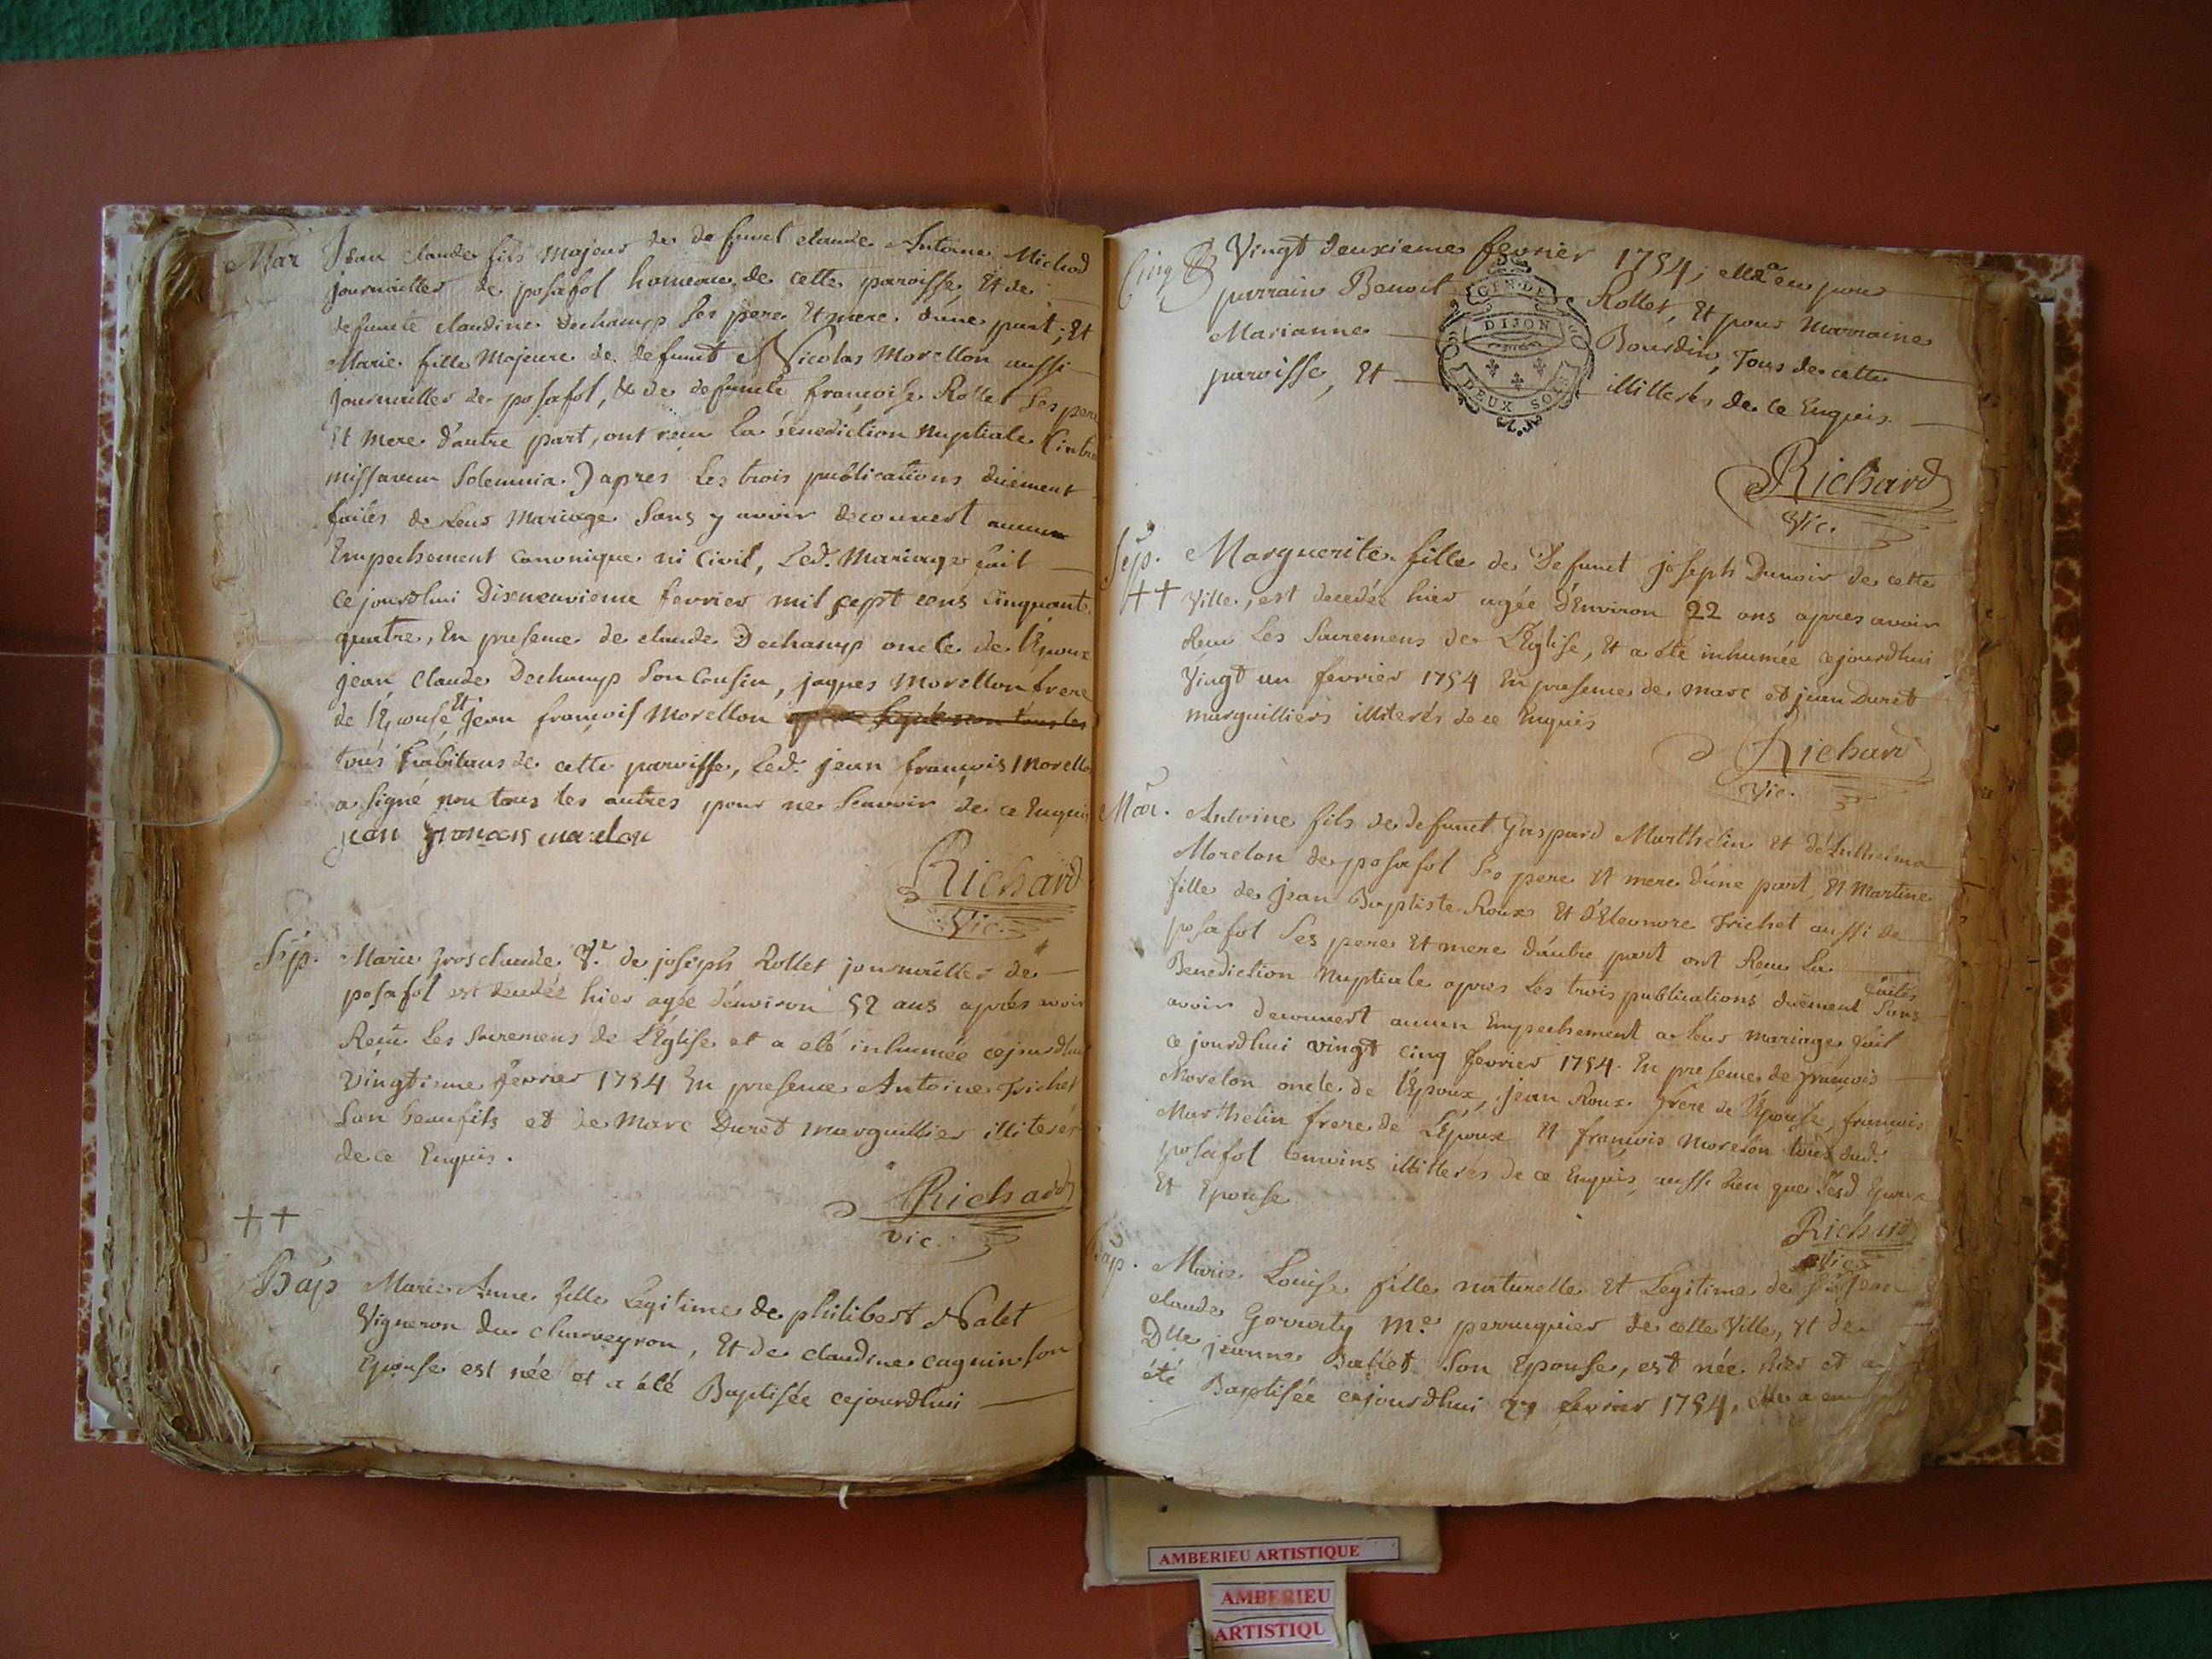 Mar Jean claude fils majeur de defunct claude Antoine Michod
journallier de posafol hameau de cette paroisse, Et de
defuncte claudine Dechamp ses pere Et mere d'une part; Et
Marie fille Majeure de defunct Nicolas Morellon aussi
journallier de posafol, & de defuncte françoise Rollet ses pere
Et mere d'autre part, ont recu la benediction nuptiale (intra
missarum solemnia) apres les trois publications duëment
faites de leur mariage sans y avoir decouvert aucun
Empechement canonique ni civil, led. mariage fait
cejourdhui Dixneuvieme fevrier mil sept cens cinquant
quatre, En presence de claude Dechamp oncle de l'Epoux
jean claude Dechamp son cousin, jaques morellon frere
de l'Epouse Et jean françois Morellon
tous habitans de cette paroisse, led. jean françois Morello
a signé non tous les autres pour ne scavoir de ce Enquis
jean françois morelon
Richard
Vic.
Sép. Marie grosclaude V.e de joseph Rollet journallier de
posafol est decedée hier agée d'environ 52 ans aprés avoir
Reçu les sacremens de L'Église et a eté inhumée cejourdhui
vingtieme fevrier 1754 En presence Antoine Trichet
son beaufils et de Marc Duret marguillier illiterés
de ce Enquis.
Richard
vic.
++
Bap Marie Anne fille Legitime de philibert Nalet
Vigneron du charveyron, Et de claudine cagnin son
Epouse est née et a été Baptisée cejourdhui
Vingt deuxieme fevrier 1754, Elle a eu pour
parrain Benoit Rollet, Et pour marraine
Marianne Bourdin, Tous de cette
paroisse, Et illiterés de ce Enquis.
GEN. DE
DIJON
DEUX SOLS
Richard
Vic.
Sep. Marguerite fille de Defunct joseph Dunoir de cette
++ Ville, est decedée hier agée d'Environ 22 ans apres avoir
Reçu Les Sacremens de L'Église, Et a été inhumée cejourdhui
Vingt un fevrier 1754 En presence de marc et jean Duret
marguilliers illiterés de ce Enquis
Richard
Vic.
Mar. Antoine fils de defunct Gaspard Marthelin Et d'Anthelma
Morelon de posafol ses pere Et mere d'une part, Et Martine
fille de jean Baptiste Roux Et d'Eleonore Trichet aussi de
posafol Ses pere Et mere d'autre part ont Reçu La
Benediction Nuptiale apres Les trois publications duëment faites sans
avoir decouvert aucun Empechement a leur mariage fait
ce jourdhui vingt cinq fevrier 1754. En presence de françois
Morelon oncle de l'Epoux, jean Roux frere de l'Epouse, françois
Marthelin frere de L'Epoux Et françois Morelon tous dud.
posafol temoins illitterés de ce Enquis, aussi bien que lesd. Epoux
Et Epouse.
Richard
Vic.
Bap. Marie Louise fille naturelle Et Legitime de Sr jean
claude Gorraty M.e perruquier de cette Ville, Et de
Dlle jeanne Ballet Son Epouse, est née hier et a
été Baptisée cejourdhui 27 fevrier 1754, elle a eu
AMBERIEU ARTISTIQUE
AMBERIEU
ARTISTIQU